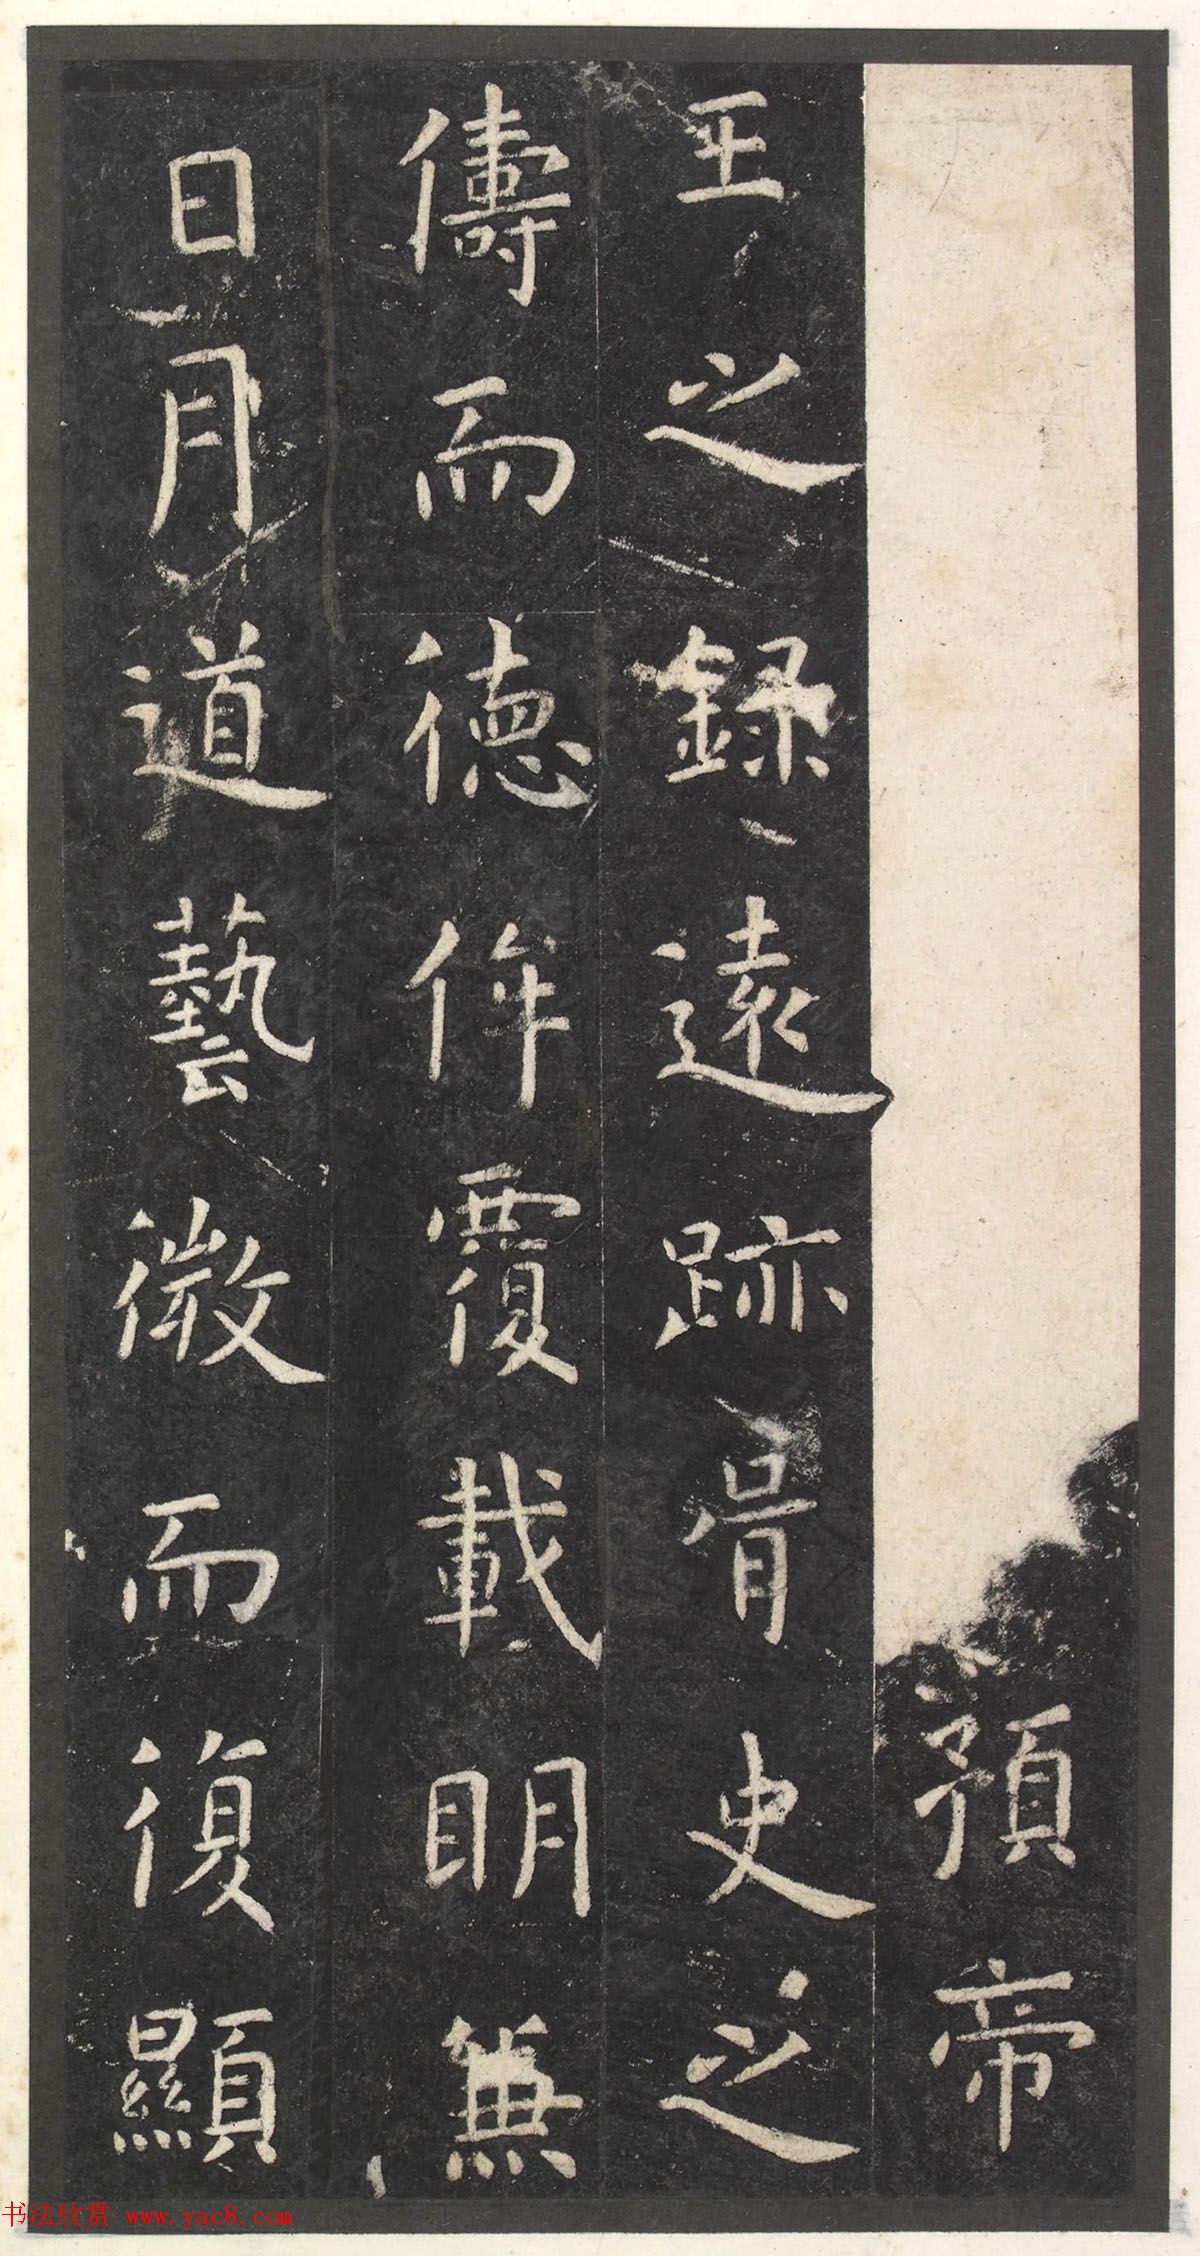 預帝
王之録遠跡胥史之
儔而徳侔覆載眀兼
日月道藝微而復顯
书法欣赏 www.yac8.com